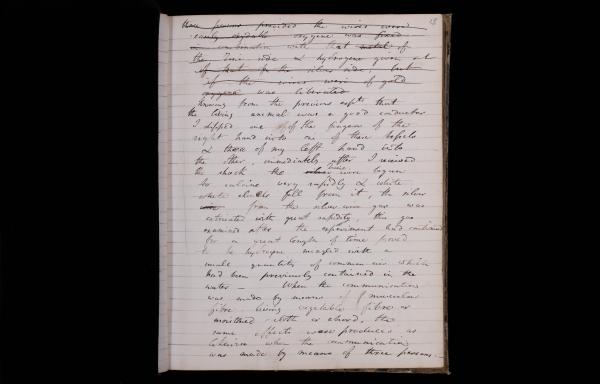 18
three persons provided the wires were
easily oxydable oxygene was fixed
in combination with that metal of
the Zinc side & hydrogene given out
if but for the silver side, but
if the wires were of gold
oxygene was liberated
Knowing from the previous expts that
the living animal was a good conductor
I dipped one of the fingers of the
right hand into one of these vessels
& those of my left hand into
the other, immediately after I received
the shock the silver zinc wire began
to calcine very rapidly & white
clouds fell from it, the silver
from the silver wire gas was
extricated with great rapidity, this gas
examined after the experiment had continued
for a great length of time proved
to be hydrogene mingled with a
small quantity of common air which
had been previously contained in the
water — When the communication
was made by means of muscular
fibre living vegetable fibre or
moistened cloth or chord, the
same effects were produced as
when the communication
was made by means of three persons.